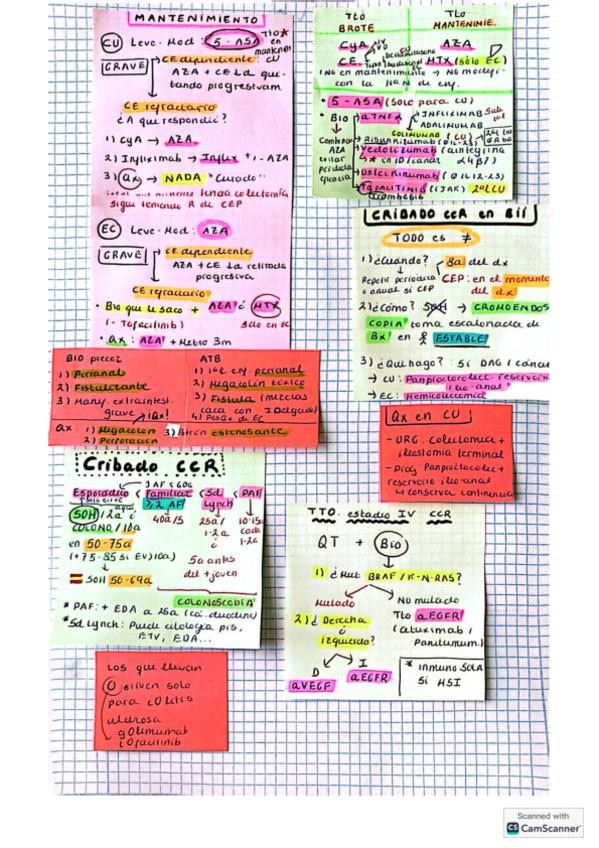 MANTENIMIENTO
CU Leve-Mod: 5-ASA Tto* en manten
GRAVE
CE dependiente: CU
AZA + CE la
tando progresivam
CE refractario
¿A que respondió?
1) CyA → AZA
2) Infliximab → Inflix +/- AZA
3) Qx → NADA "Curado"
sigue teniendo R de CEP
EC Leve-Mod: AZA
GRAVE
CE dependiente
AZA + CE la retirada
progresiva
CE refractario
• Bio que lo sacó + AZA ó MTX
(- Tofacitinib) Sólo en EC
• Qx: AZA + Metro 3m
Tto BROTE
Tto MANTENIMIE.
CyA
AZA
CE
MTX (sólo EC)
(No en mantenimiento → No modifi-
can la de enf.
• 5-ASA (solo para CU)
• Bio
aTNFα
INFLIXIMAB
ADALIMUMAB
GOLIMUMAB (CU)
Risankizumab (IL-23)
Vedolizumab (aintegrina
α4β7)
Ustekinumab (IL12-23)
Tofacitinib (iJAK) 2ªL CU
CRIBADO CCR en EII
TODO es ≠
1) ¿Cuando? 8a del dx
Repetir periódica
anual si CEP
CEP: en el momento
del dx
2) ¿Cómo? → CROMOENDOS
COPIA toma escalonada de
Bx en EII ESTABLE
3) ¿Qué hago? Si DAG / cáncer
→ CU: Panproctocolect. reservorio
ileo-anal
→ EC: Hemicolectomía
BIO precoz
1) Perianal
2) Fistulizante
3) Manif. extraintest.
grave ¡Qx!
ATB
1) EC enf. perianal
2) Megacolon tóxico
3) Fistula (mezclas
caca con I Delgado)
4) PosQx de EC
Qx: 1) Megacolon 3) Btron estenosante
2) Perforación
Qx en CU
- URG: Colectomía +
ileostomía terminal
- Prog Panproctocolec +
reservorio ileo-anal
conserva continencia
Cribado CCR
1 AF < 60a
Esporádico < Familiar < Sd Lynch < PAF
≥2 AF
SOH/2a ó
COLONO/10a
en 50-75a
(+75-85 si EV>10a)
SOH 50-69a
40a/5
25a/
1-2a
ó
5a antes
del + joven
10-15a
cada
1-2a
COLONOSCOPIA
* PAF: + EDA a 25a (ca. duodeno)
* Sd Lynch: Puede citología pis,
ETV, EDA...
TTO. estadio IV CCR
QT + Bio
1) ¿Mut BRAF/K-N-RAS?
Mutado
No mutado
Tto aEGFR
(Cetuximab /
Panitumum.)
2) ¿Derecha
ó
izquierdo?
D
I
aVEGF
aEGFR
* inmuno SOLA
si MSI
Los que llevan
O sirven solo
para colitis
ulcerosa
golimumab
tofacitinib
Scanned with
CS CamScanner